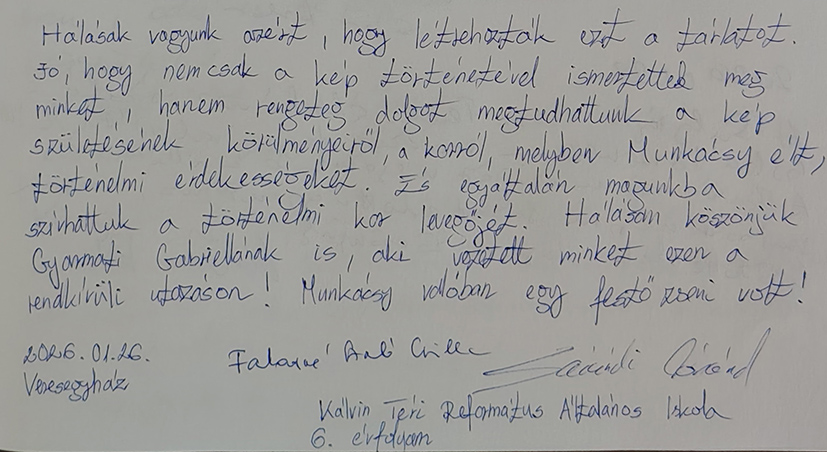 Hálásak vagyunk azért, hogy létrehozták ezt a tárlatot.
Jó, hogy nemcsak a kép történetével ismertettek meg
minket, hanem rengeteg dolgot megtudhattunk a kép
születésének körülményeiről, a korról, melyben Munkácsy élt,
történelmi érdekességeket. És egyáltalán magunkba
szívhattuk a történelmi kor levegőjét. Hálásan köszönjük
Gyarmati Gabriellának is, aki vezetett minket ezen a
rendkívüli utazáson! Munkácsy valóban egy festő zseni volt!
2026.01.26.
Veresegyház
Kálvin Téri Református Általános Iskola
6. évfolyam